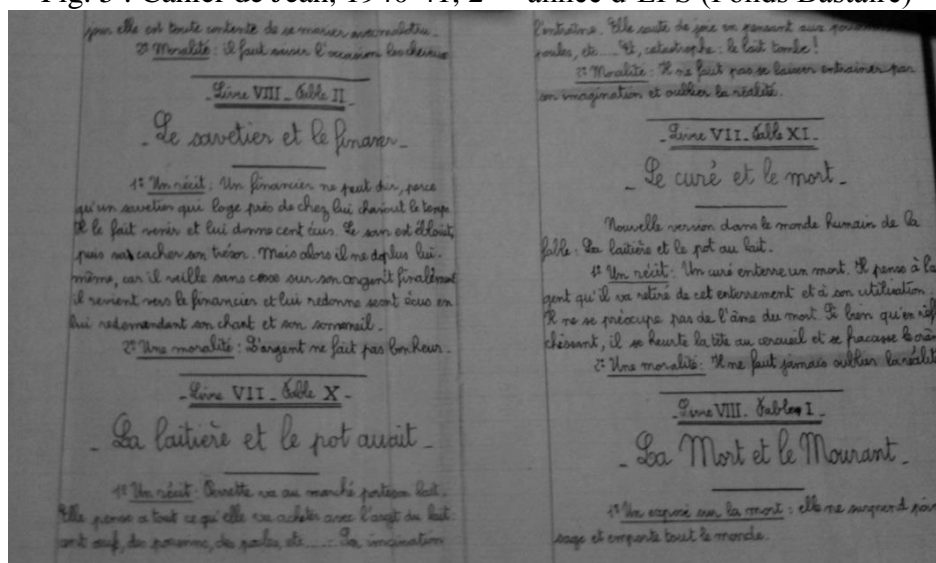 Fig. 3 : Cahier de Jean, 1940-41, 2 année d'EPS (Fonds Bastaire)
jour elle est toute contente de se marier
2° Moralité : il faut saisir l'occasion les cheveux
Livre VIII _ Fable II
_ Le savetier et le finan _
1° Un récit : Un financier ne peut , parce
qu'un savetier qui loge près de chez lui le temps.
Il le fait venir et lui donne cent écus. Le est ébloui,
puis cacher son trésor. Mais alors il ne plus lui-
même, car il veille sans cesse sur son argent finalement
il revient vers le financier et lui redonne cent écus en
lui redemandant son chant et son sommeil.
2° Une moralité : L'argent ne fait pas bonheur.
_ Livre VII _ Fable X _
_ La laitière et le pot au ait _
1° Un récit : Perrette va au marché porte son lait.
Elle pense a tout ce qu'elle va acheter avec l'arget du lait:
cent œuf, des , des poules, etc .... La imagination
l'entraîne. Elle saute de joie en pensant aux
poules, etc .... Et, catastrophe : le lait tombe !
2° Moralité : Il ne faut pas se laisser entraîner par
son imagination et oublier la réalité.
_ Livre VII _ Fable XI _
_ Le curé et le mort _
Nouvelle version dans le monde humain de la
fable : La laitière et le pot au lait.
1° Un récit : Un curé enterre un mort. Il pense à l'a
gent qu'il va retiré de cet enterrement et à son utilisation.
Il ne se préocupe pas de l'âme du mort. Si bien qu'en réf
chissant, il se heurte la tête au cercueil et se fracasse le crân
2° Une moralité : Il ne faut jamais oublier la réalité
_ Livre VIII. Fable I _
_ La Mort et le Mourant _
1° Un exposé sur la mort : elle ne surprend
sage et emporte tout le monde.